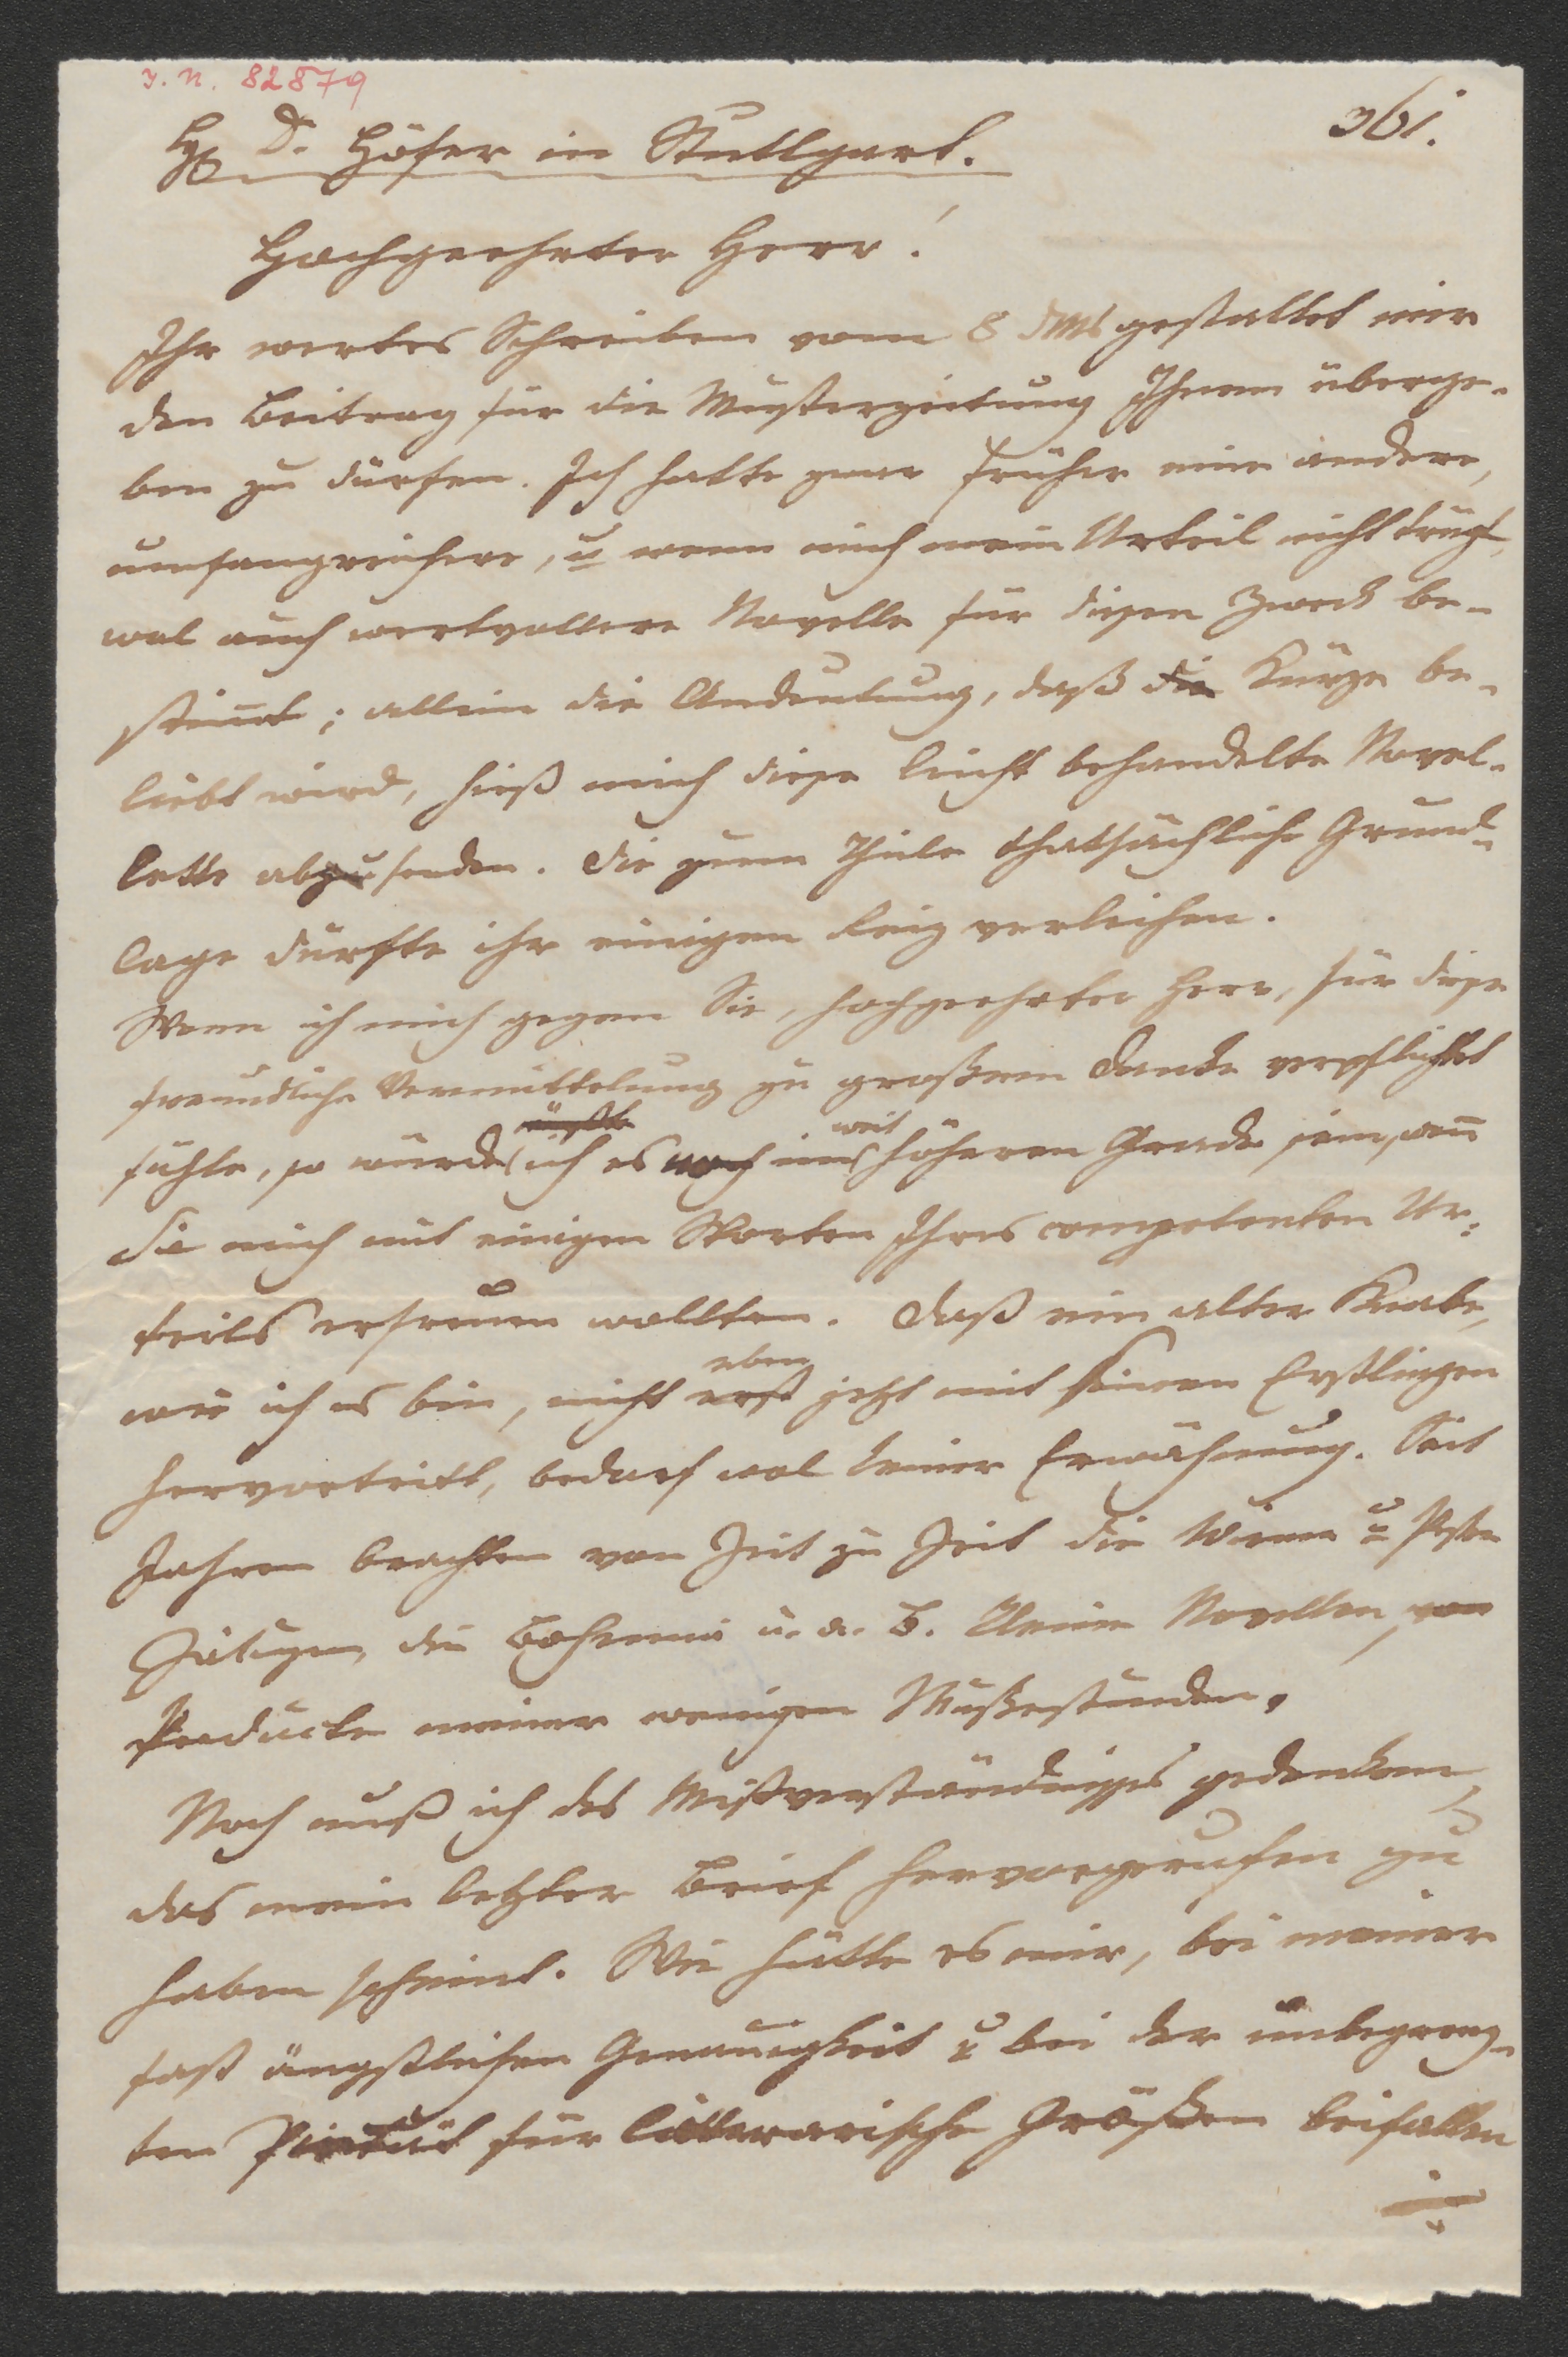 I. N. 82879
361.
H D. Höfer in Stuttgart.
Hochgeehrter Herr!
Ihr wertes Schreiben vom 8 dMs gestattet mir
den Beitrag für die Musterzeitung Ihnen überge-
ben zu dürfen. Ich hatte zwar früher eine andere,
umfangreichere, u wenn mich mein Urteil nicht trügt,
wol auch wertvollere Novelle für diesen Zweck be-
stimt; allein die Andeutung, daß die Kürze be-
liebt wird, hieß mich diese leicht behandelte Novel-
lette abzusenden. Die zum Theile thatsächliche Grund-
lage dürfte ihr einigen Reiz verleihen.
Wenn ich mich gegen Sie, hochgeehrter Herr, für diese
freundliche Vermittelung zu großem Danke verpflichtet
müßte weit
fühle, so würde ich es noch im höheren Grade sein, wen
Sie mich mit einigen Worten Ihres competenten Ur-
teils erfreuen wollten. Daß ein alter Knabe,
eben
wie ich es bin, nicht erst jetzt mit seinen Erstlingen
hervortritt, bedarf wol keiner Erwähnung. Seit
Jahren brachten von Zeit zu Zeit die Wiener u Pester
Zeitugen, die Bohemia u. a. B. kleine Novellen, von
Producte meiner wenigen Mußestunden.
Noch muß ich des Mißverständnisses gedenken,
das mein letzter Brief hervorgerufen zu
haben scheint. Wie hätte es mir, bei meiner
fast ängstlichen Genauigkeit u bei der unbegrenz-
ten Pietät für litterarische Größen beifallen